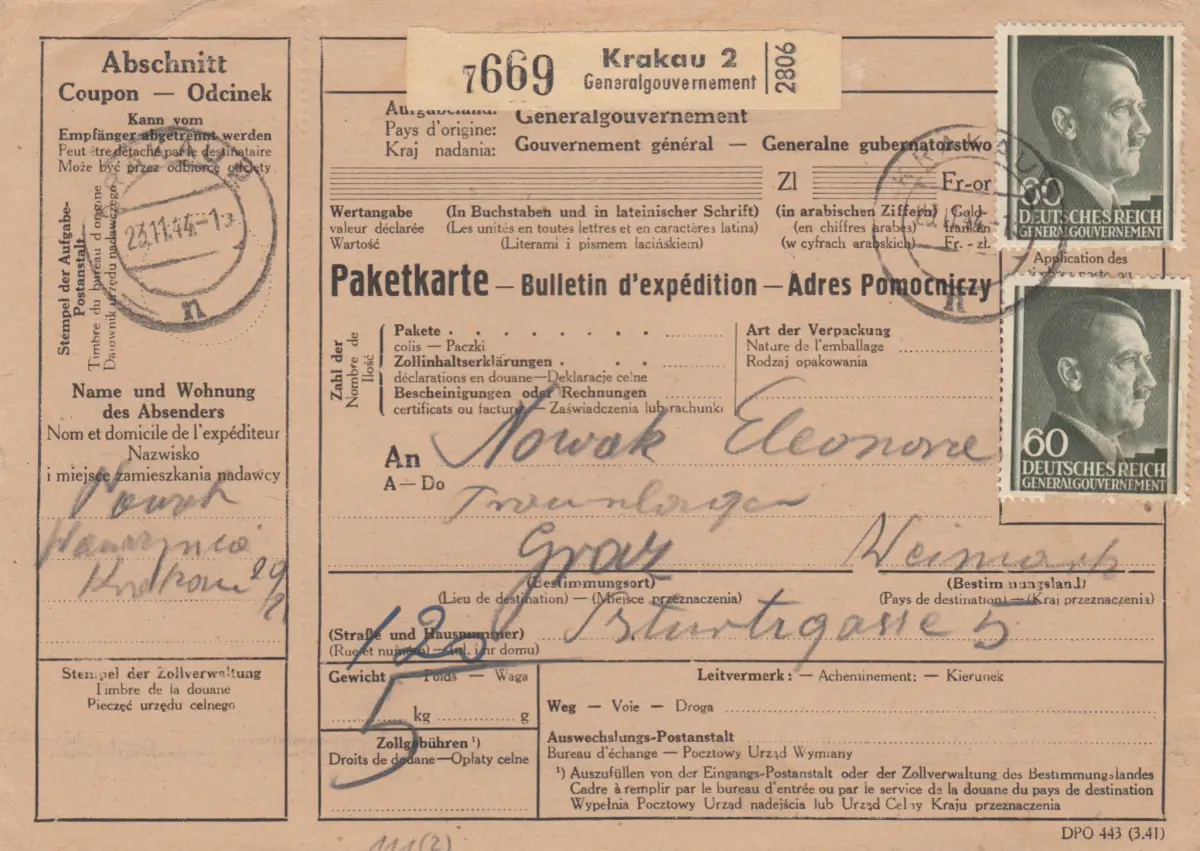 Abschnitt
Coupon — Odcinek
Kann vom
Empfänger abgetrennt werden
Peut être détaché par le destinataire
Może być przez odbiorcę odcięty
Stempel der Aufgabe-
Postanstalt
Timbre du bureau d'origine
Datownik urzędu nadawczego
23.11.44.-1
n
Name und Wohnung
des Absenders
Nom et domicile de l'expéditeur
Nazwisko
i miejsce zamieszkania nadawcy
Nowak
29
Stempel der Zollverwaltung
Timbre de la douane
Pieczęć urzędu celnego
7669
Krakau 2
Generalgouvernement
2806
Aufgabeland:
Generalgouvernement
Pays d'origine:
Kraj nadania:
Gouvernement général — Generalne gubernatorstwo
Zl
Fr-or
Wertangabe
valeur déclarée
Wartość
(In Buchstaben und in lateinischer Schrift)
(Les unités en toutes lettres et en caractères latins)
(Literami i pismem łacińskiem)
(in arabischen Ziffern)
(en chiffres arabes)
(w cyfrach arabskich)
Gold-
franken
Fr. - zł.
KRAKAU
n
60
DEUTSCHES REICH
GENERALGOUVERNEMENT
Application des
60
DEUTSCHES REICH
GENERALGOUVERNEMENT
Paketkarte — Bulletin d'expédition — Adres Pomocniczy
Zahl der
Nombre de
Ilość
Pakete
colis — Paczki
Zollinhaltserklärungen
déclarations en douane—Deklaracje celne
Bescheinigungen oder Rechnungen
certificats ou factures — Zaświadczenia lub rachunki
Art der Verpackung
Nature de l'emballage
Rodzaj opakowania
An
A — Do
Nowak Eleonore
Graz
(Bestimmungsort)
(Lieu de destination) — (Miejsce przeznaczenia)
(Bestimmungsland)
(Pays de destination) — (Kraj przeznaczenia)
(Straße und Hausnummer)
(Rue et numéro) — (ul. i nr domu)
5
120
5
Gewicht — Poids — Waga
kg g
Zollgebühren ¹)
Droits de douane—Opłaty celne
Leitvermerk: — Acheminement: — Kierunek
Weg — Voie — Droga
Auswechslungs-Postanstalt
Bureau d'échange — Pocztowy Urząd Wymiany
¹) Auszufüllen von der Eingangs-Postanstalt oder der Zollverwaltung des Bestimmungslandes
Cadre à remplir par le bureau d'entrée ou par le service de la douane du pays de destination
Wypełnia Pocztowy Urząd nadejścia lub Urząd Celny Kraju przeznaczenia
DPO 443 (3.41)